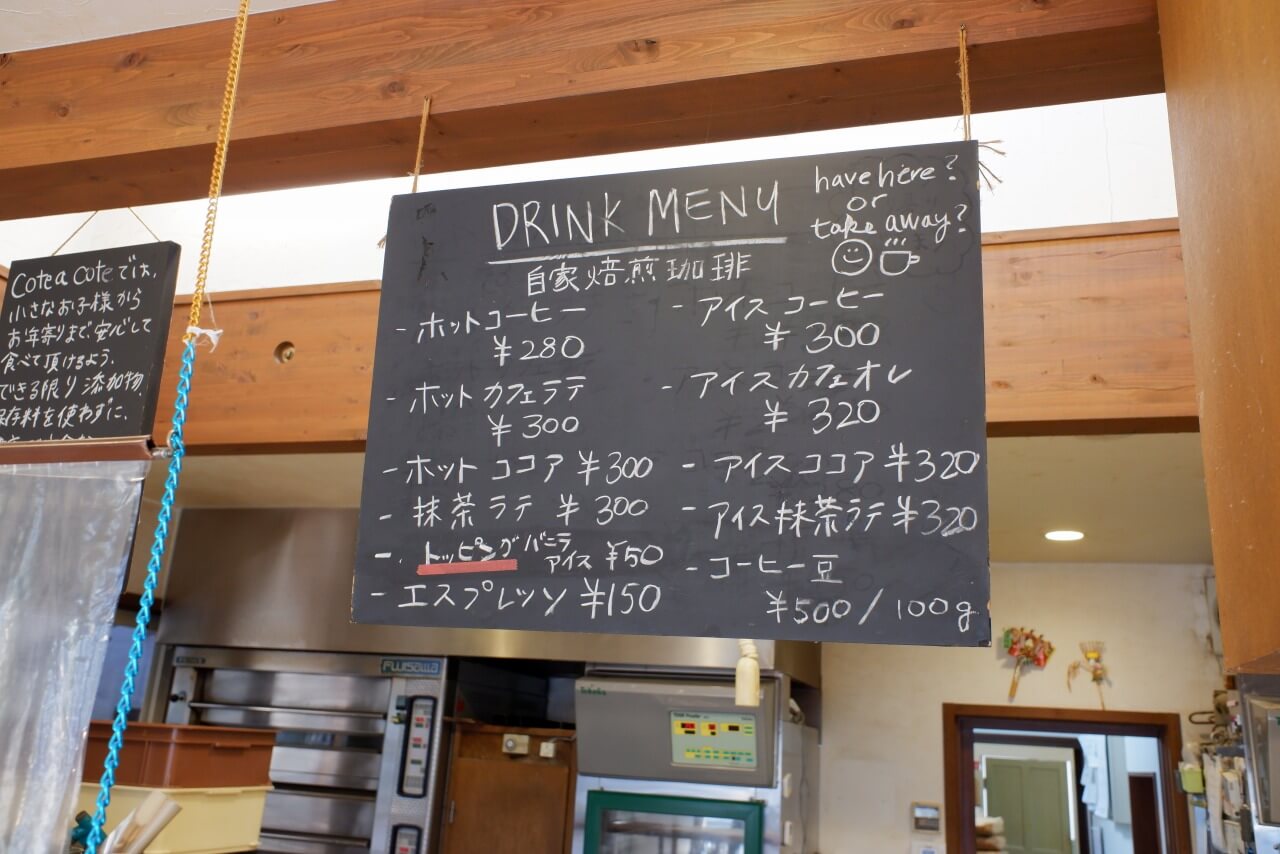 Cotea Coteでは、
小さなお子様から
お年寄りまで安心して
食べて頂けるよう、
できる限り添加物、
保存料を使わずに、
DRINK MENU
have here?
or
take away?
自家焙煎珈琲
- ホットコーヒー
¥280
- ホットカフェラテ
¥300
- ホットココア ¥300
- 抹茶ラテ ¥300
- トッピングバニラ
アイス ¥50
- エスプレッソ ¥150
- アイスコーヒー
¥300
- アイスカフェオレ
¥320
- アイスココア ¥320
- アイス抹茶ラテ ¥320
- コーヒー豆
¥500/100g
FUJISAWA